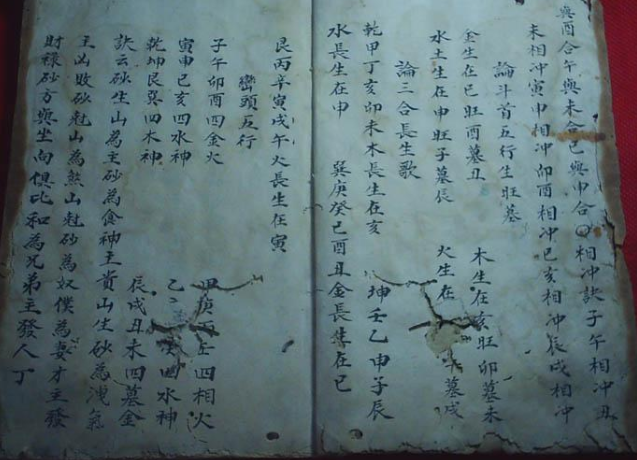 與酉合午與未合巳與申合○相冲訣子午相冲丑
未相冲寅申相冲卯酉相冲巳亥相冲辰戌相冲
論斗首五行生旺墓
金生在巳旺酉墓丑 木生在亥旺卯墓未
水土生在申旺子墓辰 火生在 墓戌
論三合長生歌
乾甲丁亥卯未木長生在亥 坤壬乙申子辰
水長生在申 巽庚癸巳酉丑金長生在巳
艮丙辛寅戌午火長生在寅
巒頭五行
子午卯酉四金火 甲庚 壬四相火
寅申巳亥四水神 乙 四水神
乾坤艮巽四木神 辰戌丑未四墓金
訣云砂生山為主砂為食神主貴山生砂為洩氣
主凶敗砂尅山為煞山尅砂為奴僕為妻才主發
財祿砂方與坐向俱比和為兄弟主發人丁